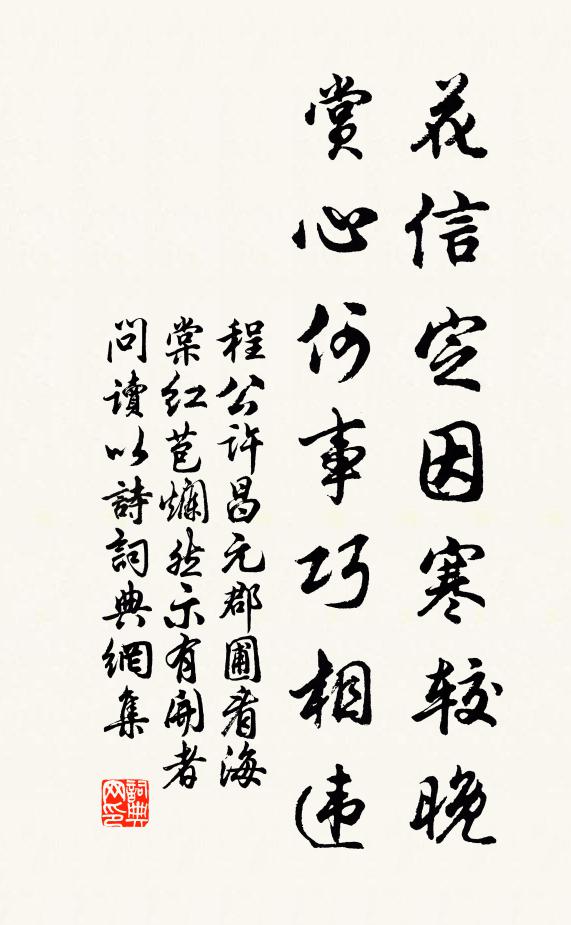 花信定因寒較晚
賞心何事巧相违
程公许昌元郡圃看海
棠红苞爛然示有開者
问讀以詩詞典網集
詞典
网印